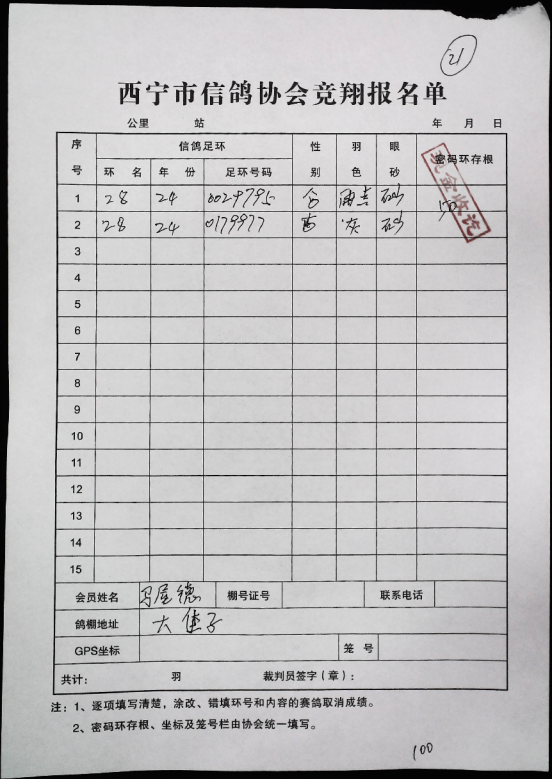 21
西宁市信鸽协会竞翔报名单
公里 站 年 月 日
序号 信鸽足环 性别 羽色 眼砂 密码环存根
环名 年份 足环号码
现金收讫
1 28 24 0029795 砂 50
2 28 24 0179977 灰 砂
3
4
5
6
7
8
9
10
11
12
13
14
15
会员姓名 棚号证号 联系电话
鸽棚地址 大
GPS坐标 笼号
共计: 羽 裁判员签字(章):
注:1、逐项填写清楚,涂改、错填环号和内容的赛鸽取消成绩。
2、密码环存根、坐标及笼号栏由协会统一填写。
100